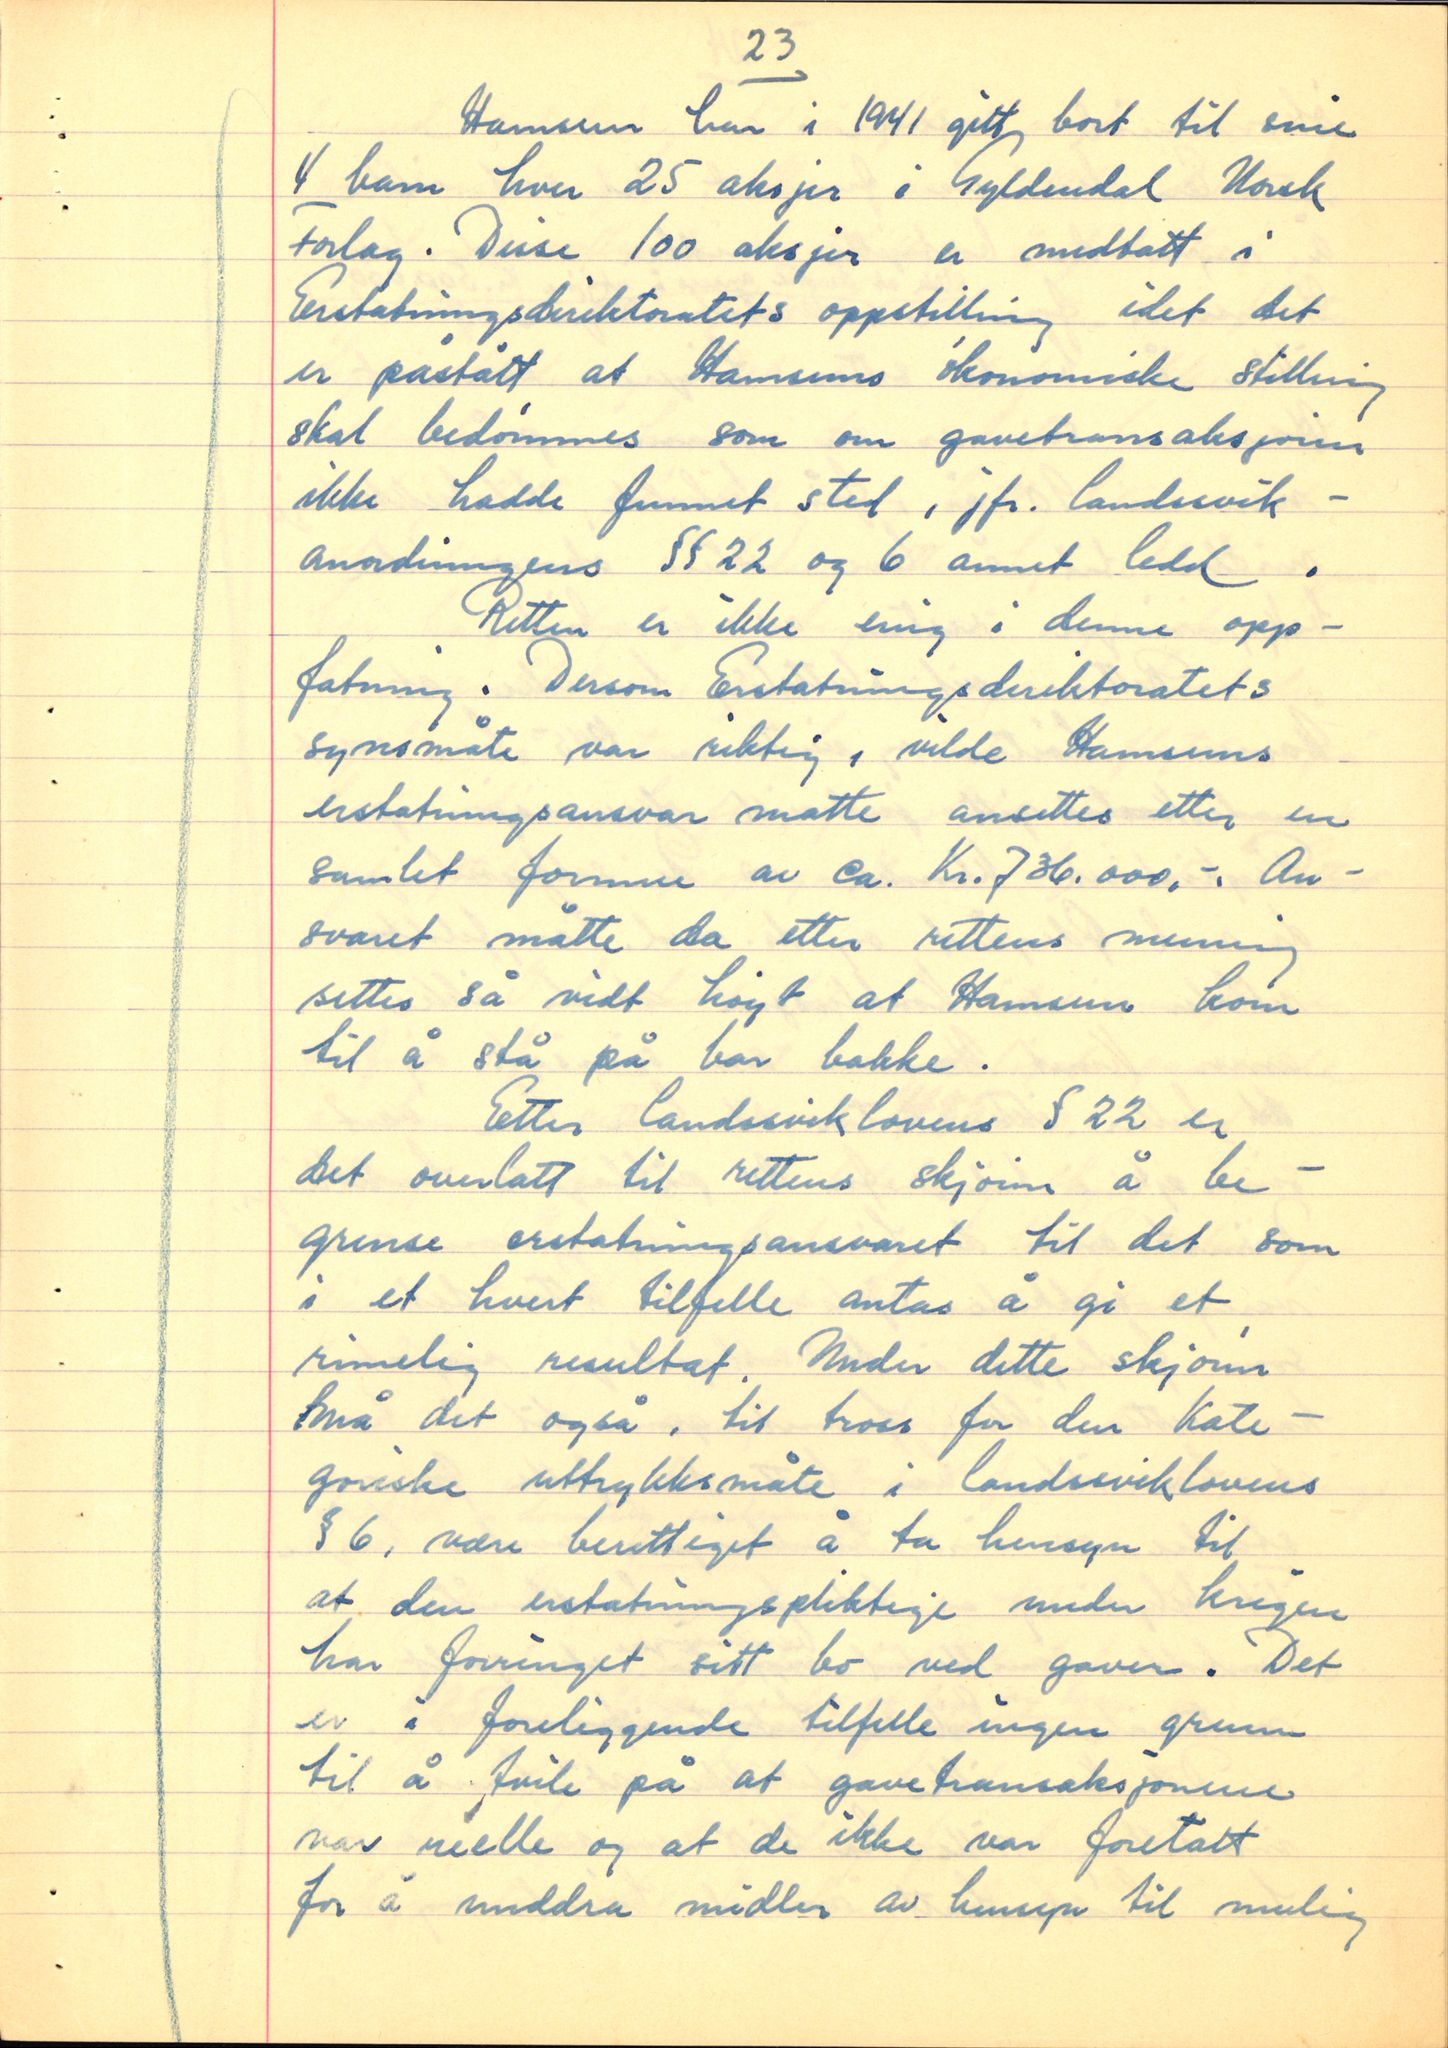 23
Hamsun har i 1941 gitt bort til sine
4 barn hver 25 aksjer i Gyldendal Norsk
Forlag. Disse 100 aksjer er medtatt i
Erstatningsdirektoratets oppstilling idet det
er påstått at Hamsuns økonomiske stilling
skal bedømmes som om gavetransaksjonen
ikke hadde funnet sted, jfr. landssvik-
anordningens §§ 22 og 6 annet ledd.
Retten er ikke enig i denne opp-
fatning. Dersom Erstatningsdirektoratets
synsmåte var riktig, vilde Hamsuns
erstatningsansvar måtte ansettes etter en
samlet formue av ca. Kr. 736.000,-. An-
svaret måtte da etter rettens mening
settes så vidt høyt at Hamsun kom
til å stå på bar bakke.
Etter landssviklovens § 22 er
det overlatt til rettens skjønn å be-
grense erstatningsansvaret til det som
i et hvert tilfelle antas å gi et
rimelig resultat. Under dette skjønn
må det også, til tross for den kate-
goriske uttrykksmåte i landssviklovens
§ 6, være berettiget å ta hensyn til
at den erstatningspliktige under krigen
har forringet sitt bo ved gaver. Det
er i foreliggende tilfelle ingen grunn
til å tvile på at gavetransaksjonene
var reelle og at de ikke var foretatt
for å unddra midler av hensyn til mulig